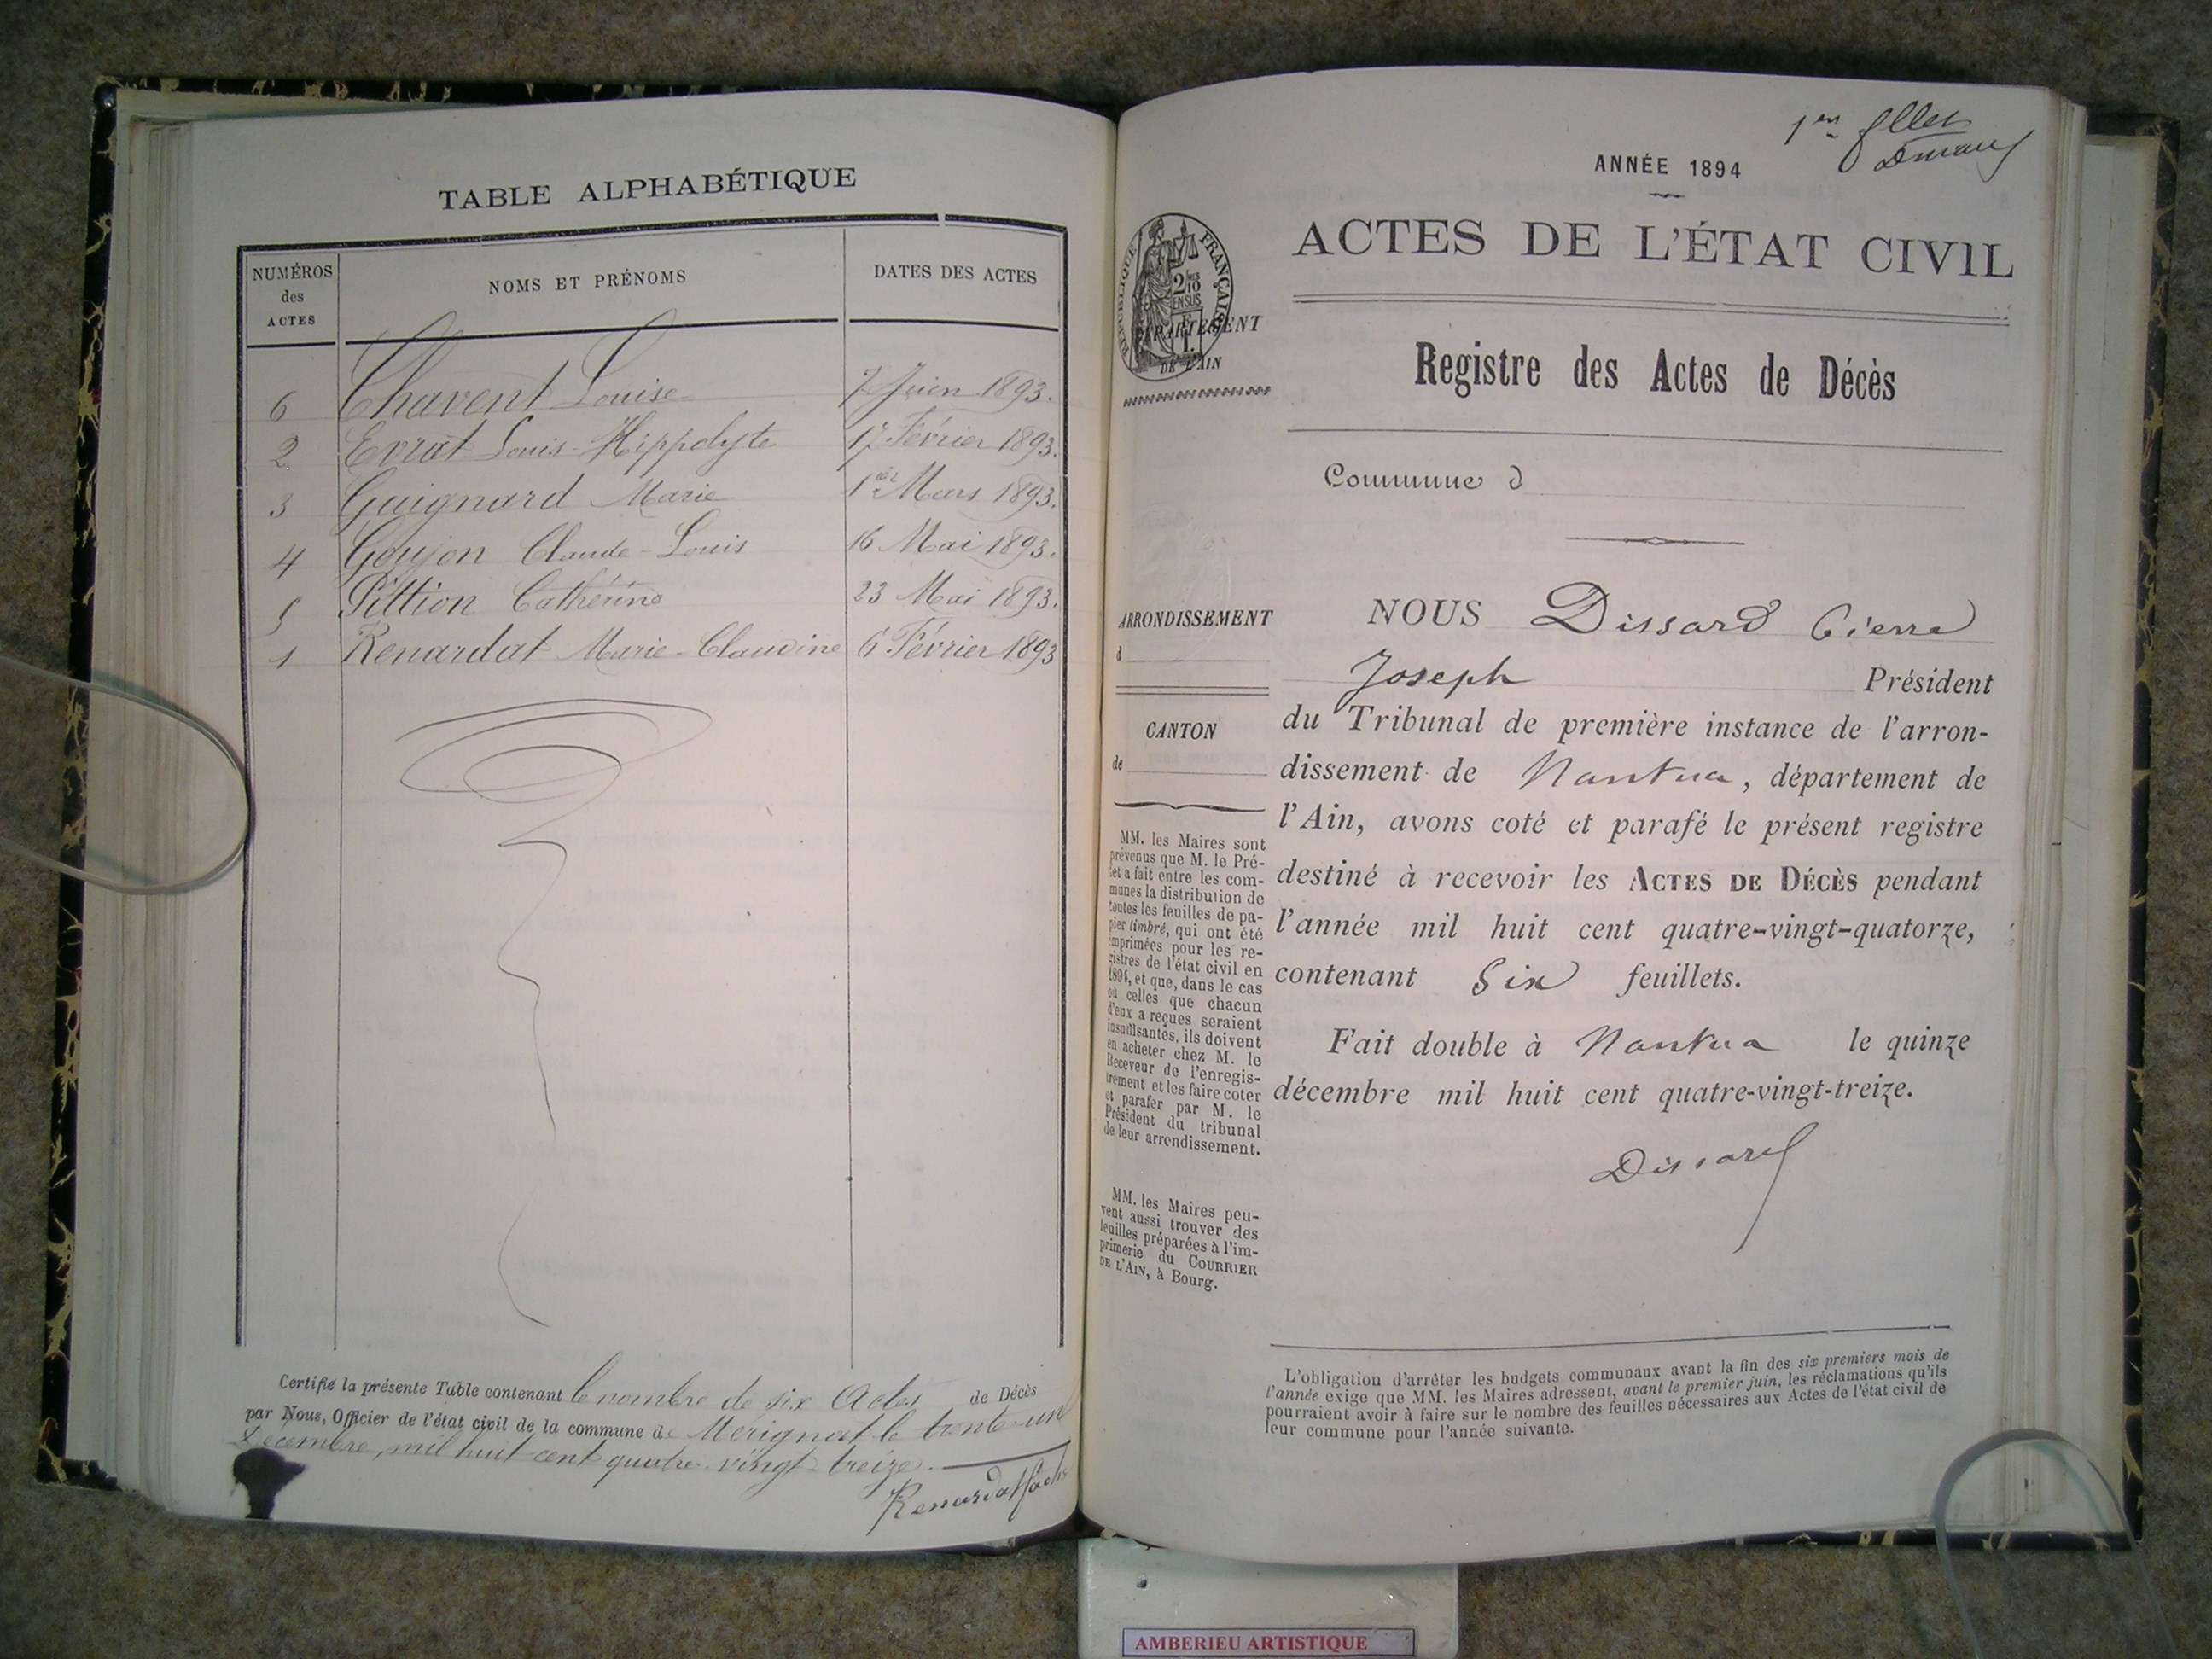 TABLE ALPHABÉTIQUE
NUMÉROS
des
ACTES
NOMS ET PRÉNOMS
DATES DES ACTES
6 Chavent Louise 7 Juin 1893.
2 Evrat Louis-Hippolyte 17 Février 1893.
3 Guignard Marie 1er Mars 1893.
4 Goujon Claude-Louis 16 Mai 1893.
5 Pittion Cathérine 23 Mai 1893.
1 Renardat Marie-Claudine 6 Février 1893
Certifié la présente Table contenant le nombre de six Actes de Décès
par Nous, Officier de l'état civil de la commune de Mérignat le trente-un
Décembre, mil huit cent quatre-vingt-treize.
Renardat
1er
ANNÉE 1894
ACTES DE L'ÉTAT CIVIL
RÉPUBLIQUE FRANÇAISE
DÉPARTEMENT
DE L'AIN
Registre des Actes de Décès
Commune d
ARRONDISSEMENT
d
CANTON
de
NOUS Dissard Pierre
Joseph Président
du Tribunal de première instance de l'arron-
dissement de Nantua, département de
l'Ain, avons coté et parafé le présent registre
destiné à recevoir les ACTES DE DÉCÈS pendant
l'année mil huit cent quatre-vingt-quatorze,
contenant Six feuillets.
Fait double à Nantua le quinze
décembre mil huit cent quatre-vingt-treize.
Dissard
MM. les Maires sont
prévenus que M. le Pré-
fet a fait entre les com-
munes la distribution de
toutes les feuilles de pa-
pier timbré, qui ont été
imprimées pour les re-
gistres de l'état civil en
1894, et que, dans le cas
où celles que chacun
d'eux a reçues seraient
insuffisantes, ils doivent
en acheter chez M. le
Receveur de l'enregis-
trement et les faire coter
et parafer par M. le
Président du tribunal
de leur arrondissement.
MM. les Maires peu-
vent aussi trouver des
feuilles préparées à l'im-
primerie du COURRIER
DE L'AIN, à Bourg.
L'obligation d'arrêter les budgets communaux avant la fin des six premiers mois de
l'année exige que MM. les Maires adressent, avant le premier juin, les réclamations qu'ils
pourraient avoir à faire sur le nombre des feuilles nécessaires aux Actes de l'état civil de
leur commune pour l'année suivante.
AMBERIEU ARTISTIQUE